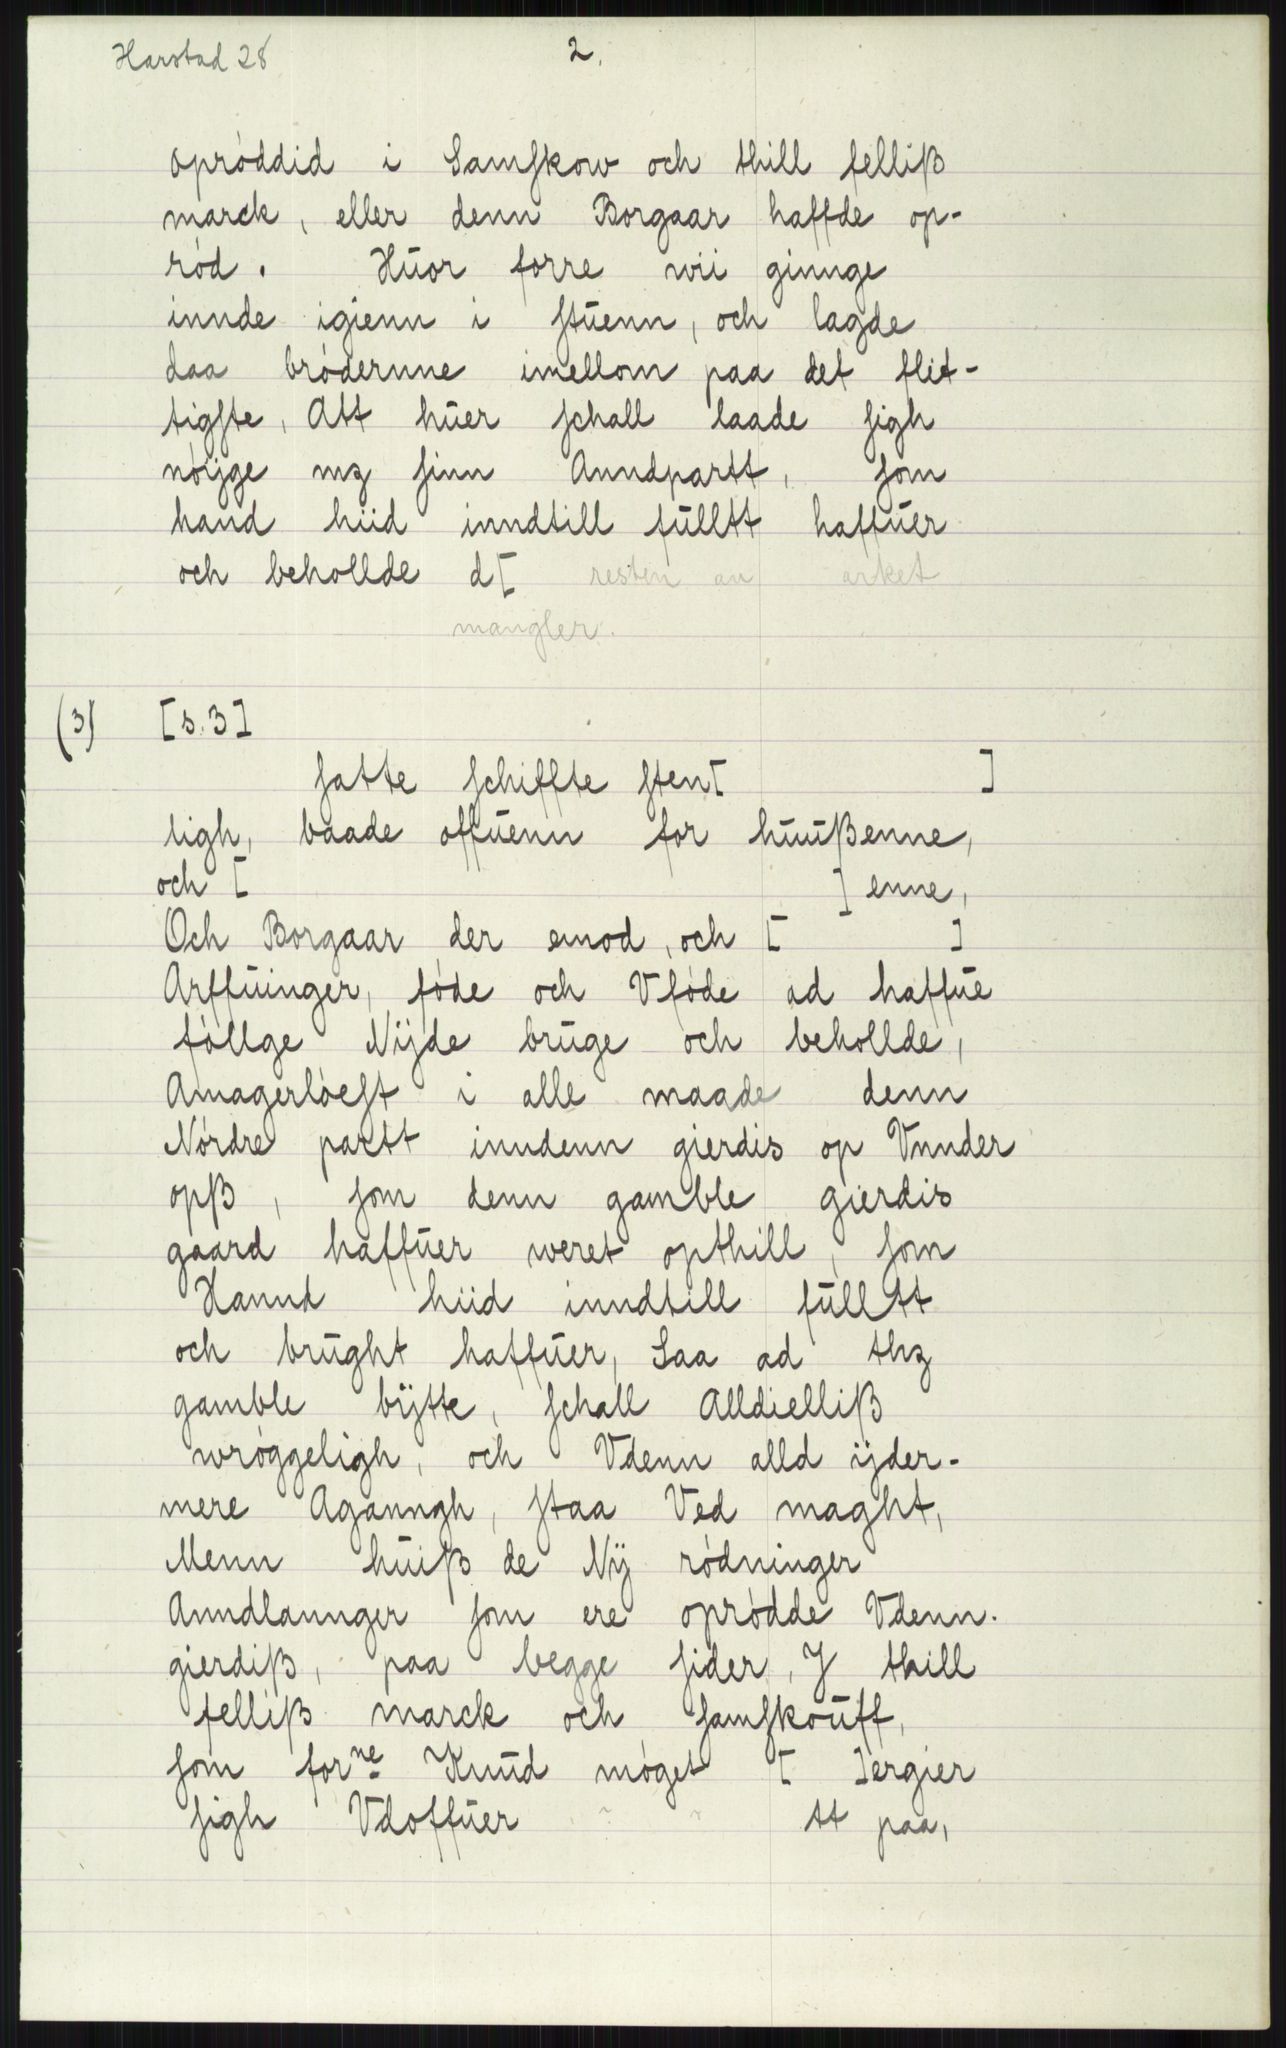 Harstad 28
2.
oprøddid i Samskow och thill felliß
marck, eller denn Borgaar haffde op-
rød. Huor forre wii ginnge
innde igienn i stuenn, och lagde
daa brødernne imellom paa det flit-
tigste, Att huer schall laade sigh
nøyge mz sinn Anndpartt, som
hand hiid inndtill fulltt haffuer
och behollde d[ resten av arket
mangler.
(3) [s. 3]
satte schiffte sten[ ]
ligh, baade offuenn for huußenne,
och [ ] enne,
Och Borgaar der emod, och [ ]
Arffuinger, føde och Vføde ad haffue
føllge Nyde bruge och behollde,
Amagerløest i alle maade denn
Nørdre partt inndenn gierdis op Vnnder
opß, som denn gamble gierdis
gaard haffuer weret opthill, som
Hannd hiid inndtill fulltt
och brught haffuer, Saa ad thz
gamble bÿtte, schall Alldielliß
wrøggeligh, och Vdenn alld ÿder-
mere Aganngh, staa Ved maght,
Menn huiß de Nÿ rødninger
Anndlannger som ere oprødde Vdenn.
gierdiß, paa begge sider, J thill
felliß marck och samskouff,
som forne Knud møget [ ]ergier
sigh Vdoffuer tt paa,